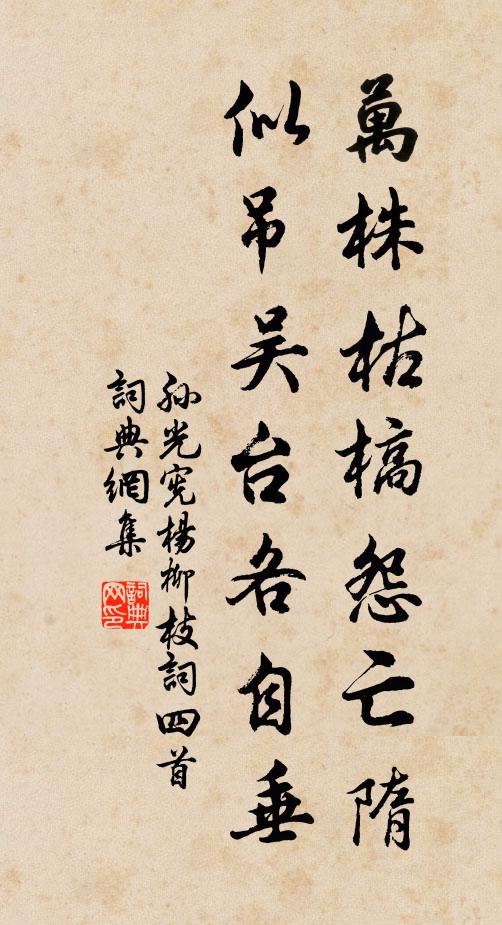 萬株枯槁怨亡隋
似吊吴台各自垂
孫光宪楊柳枝詞四首
詞典網集
詞典网印